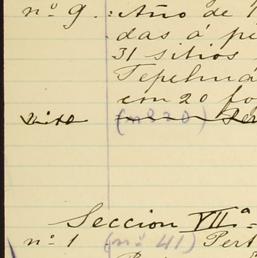 nº 9. : Año de 1
das á pe
31 sitios
Tepehuá
em 20 fo
(nº 20)
Seccion VIIª =
nº 1 (nº 41) Pert